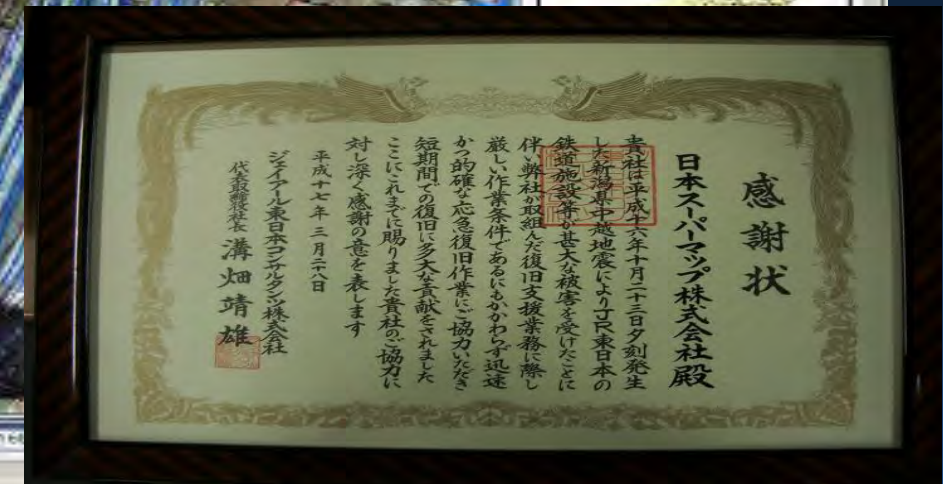 感謝状
日本スーパーマップ株式会社殿
貴社は平成十六年十月二十三日夕刻発生
した新潟県中越地震によりJR東日本の
鉄道施設等が甚大な被害を受けたことに
伴い弊社が取組んだ復旧支援業務に際し
厳しい作業条件であるにもかかわらず迅速
かつ的確な応急復旧作業にご協力いただき
短期間での復旧に多大な貢献をされました
ここにこれまでに賜りました貴社のご協力に
対し深く感謝の意を表します
平成十七年三月二十八日
ジェイアール東日本コンサルタンツ株式会社
代表取締役社長 溝畑靖雄